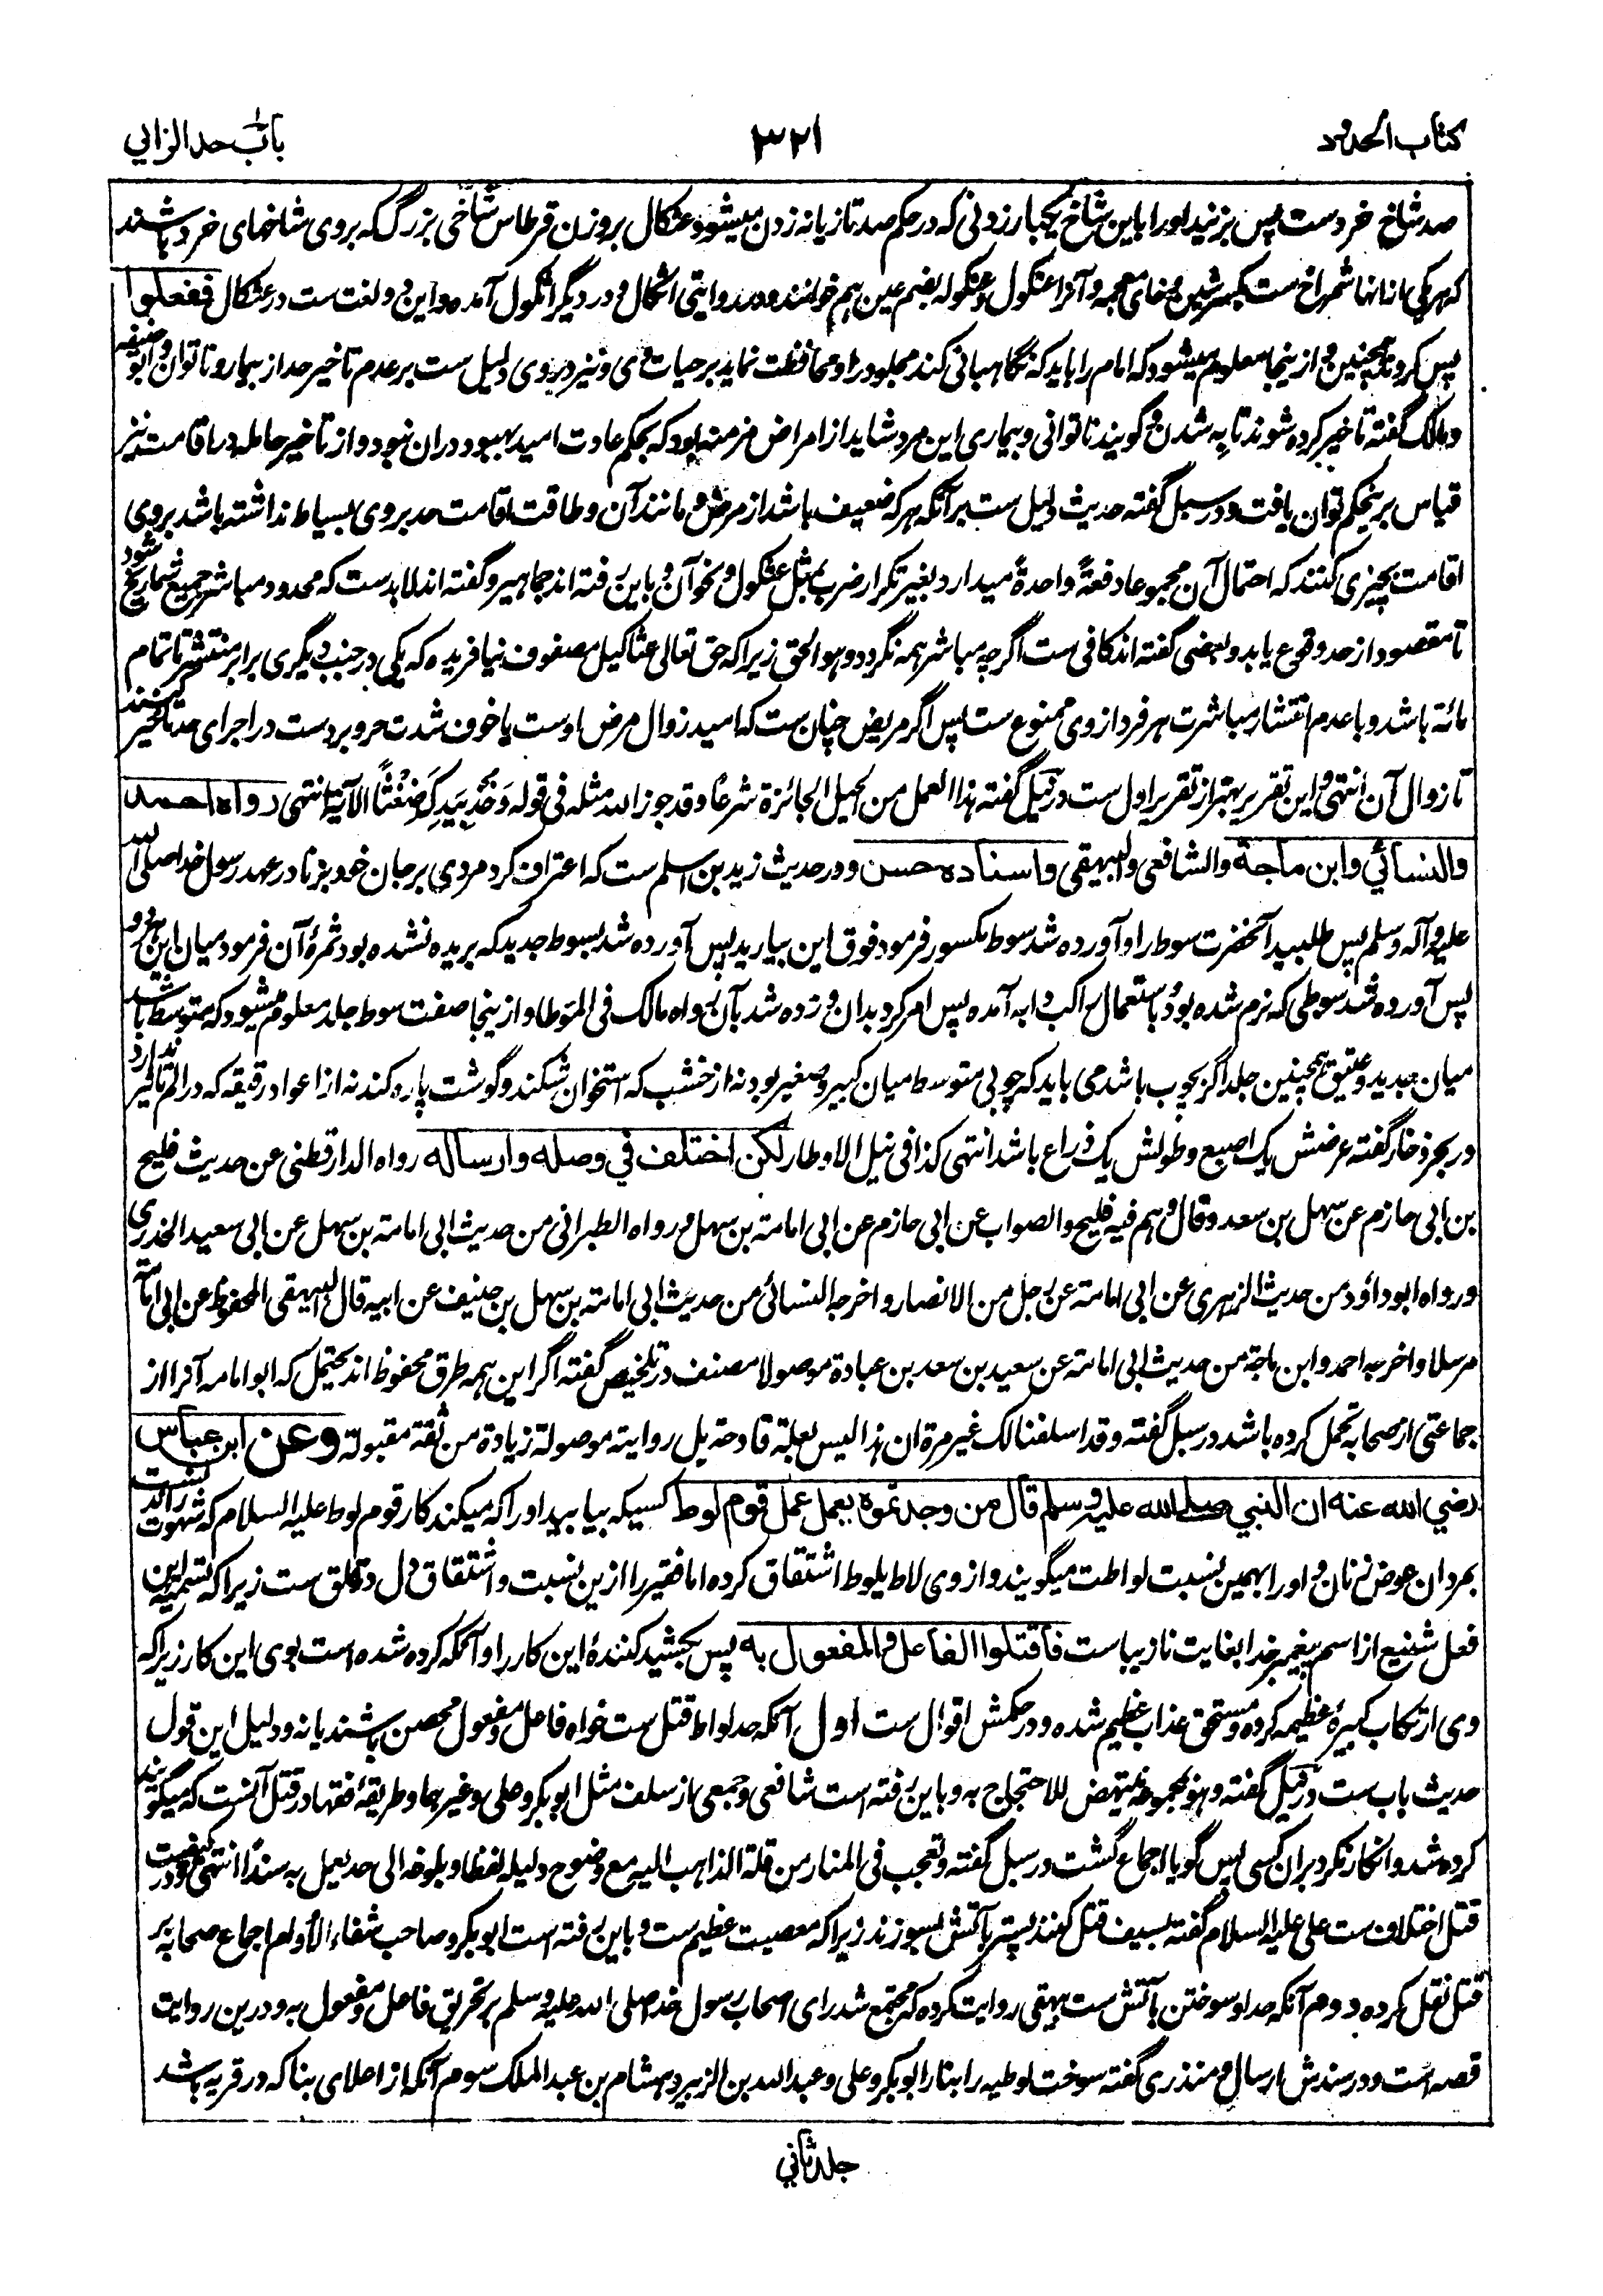 كتاب الحدود
۳۲۱
باب حد الزاني
صد شاخ خردست پس بزنید او را باین شاخ یکبار زدنی که در حکم صد تازیانه زدن میشود و عثکال بروزن قرطاس شاخی بزرگ که بروی شاخهای خرد باشند
که هر یکی ازانها شمراخ ست بکسر شین و خای معجمه و آنرا عثکول و عثکوله بضم عین هم خوانند و در روایتی اثکال و در دیگر اثکول آمده و این دو لغت ست در عثکال ففعلوا
پس کردند همچنین و ازینجا معلوم میشود که امام را باید که نگاهبانی کند مجلود را و محافظت نماید بر حیات وی و نیز در وی دلیل ست بر عدم تاخیر حد از بیمار و ناتوان و ابو حنیفه
و مالک گفته تاخیر کرده شوند تا به شدن و گویند ناتوانی و بیماری این مرد شاید از امراض مزمنه بود که بحکم عادت امید بهبود دران نبود و از تاخیر حامله در اقامت نیز
قیاس برینحکم توان یافت و در سبل گفته حدیث دلیل ست بر آنکه هر که ضعیف باشد از مرض و مانند آن و طاقت اقامت حد بروی بسیاط نداشته باشد بروی
اقامت بچیزی کنند که احتمال آن مجموعا دفعةً واحدةً میدارد بغیر تکرار ضرب بمثل عثکول و نحو آن و باین رفته اند جماهیر و گفته اند لابدست که محدود مباشر جمیع شماریخ شود
تا مقصود از حد وقوع یابد و بعضی گفته اند کافی ست اگرچه مباشر همه نگردد و هو الحق زیرا که حق تعالی عثاکیل مصفوف نیافریده که یکی در جنب دیگری برابر منتشر تا تمام
مائة باشد و با عدم انتشار مباشرت هر فرد از وی ممنوع ست پس اگر مریض چنان ست که امید زوال مرض اوست یا خوف شدت حر و بردست در اجرای حد تاخیر کنند
تا زوال آن انتهی و این تقریر بهتر از تقریر اول ست و در نیل گفته هذا العمل من الحیل الجائزة شرعا و قد جوز الله مثله فی قوله وَخُذْ بِيَدِكَ ضِغْثًا الآیة انتهی رواه احمد
والنسائي وابن ماجة والشافعی والبیهقی واسناده حسن و در حدیث زید بن اسلم ست که اعتراف کرد مردی بر جان خود بزنا در عهد رسول خدا صلی الله
علیه و آله و سلم پس طلبید آنحضرت سوط را و آورده شد سوط مکسور فرمود فوق این بیارید پس آورده شد بسوط جدید که بریده نشده بود ثمرۀ آن فرمود میان این هر دو
پس آورده شد سوطی که نرم شده بود باستعمال راکب دابه آمده پس امر کرد بدان و زده شد بآن رواه مالک فی الموطا و ازینجا صفت سوط جلد معلوم میشود که متوسط باشد
میان جدید و عتیق و همچنین جلد اگر بچوب باشد می باید که چوبی متوسط میان کبیر و صغیر بود نه از خشب که استخوان شکند و گوشت پاره کند نه از اعواد رقیقه که در الم تاثیر ندارد
و در بحر ذخار گفته عرضش یک اصبع و طولش یک ذراع باشد انتهی کذا فی نیل الاوطار لکن اختلف في وصله وارساله رواه الدارقطنی عن حدیث فلیح
بن ابی حازم عن سهل بن سعد و قال وهم فیه فلیح والصواب عن ابی حازم عن ابی امامة بن سهل و رواه الطبرانی من حدیث ابی امامة بن سهل عن ابی سعید الخدری
و رواه ابو داؤد من حدیث الزهری عن ابی امامة عن رجل من الانصار و اخرجه النسائی من حدیث ابی امامة بن سهل بن حنیف عن ابیه قال البیهقی المحفوظ عن ابی امامة
مرسلا و اخرجه احمد و ابن ماجة من حدیث ابی امامة عن سعید بن سعد بن عبادة موصولا مصنف در تلخیص گفته اگر این همه طرق محفوظ اند یحتمل که ابو امامه آنرا از
جماعتی از صحابه تحمل کرده باشد در سبل گفته و قد اسلفنا لک غیر مرة ان هذا لیس بعلة قادحة بل روایته موصولة زیادة من ثقة مقبولة وعن ابن عباس
رضي الله عنه ان النبي صلى الله عليه وسلم قال من وجدتموه يعمل عمل قوم لوط کسیکه بیابید او را که میکند کار قوم لوط علیه السلام که شهوت رانی ست
بمردان عوض زنان و او را بهمین نسبت لواطت میگویند و از وی لاط یلوط اشتقاق کرده اما فقیر را ازین نسبت و اشتقاق دل در قلق ست زیرا که تسمیه این
فعل شنیع از اسم پیغمبر خدا بغایت نازیباست فاقتلوا الفاعل والمفعول به پس بکشید کنندۀ این کار را و آنکه کرده شده است بوی این کار زیرا که
وی ارتکاب کبیرۀ عظیمه کرده و مستحق عذاب عظیم شده و در حکمش اقوال ست اول آنکه حد لواط قتل ست خواه فاعل و مفعول محصن باشند یا نه و دلیل این قول
حدیث باب ست و در نیل گفته و هو بمجموعه ینتهض للاحتجاج به و باین رفته است شافعی و جمعی از سلف مثل ابو بکر و علی و غیرهما و طریقۀ فقها در قتل آنست که میگویند
کرده شد و انکار نکرد بران کسی پس گویا اجماع گشت در سبل گفته و تعجب فی المنار من قلة الذاهب الیه مع وضوح دلیله لفظا و بلوغه الی حد یعمل به سندًا انتهی و در کیفیت
قتل اختلاف ست علی علیه السلام گفته بسیف قتل کنند پستر بآتش بسوزند زیرا که معصیت عظیم ست و باین رفته است ابو بکر و صاحب شفاء الاوام اجماع صحابه بر
قتل نقل کرده دوم آنکه حد او سوختن بآتش ست بیهقی روایت کرده که مجتمع شد رای اصحاب رسول خدا صلی الله علیه و سلم بر تحریق فاعل و مفعول به و درین روایت
قصه است و در سندش ارسال و منذری گفته سوخت لوطیه را بنار ابو بکر و علی و عبد الله بن الزبیر و هشام بن عبد الملک سوم آنکه از اعلای بنا که در قریه باشد
جلد ثاني